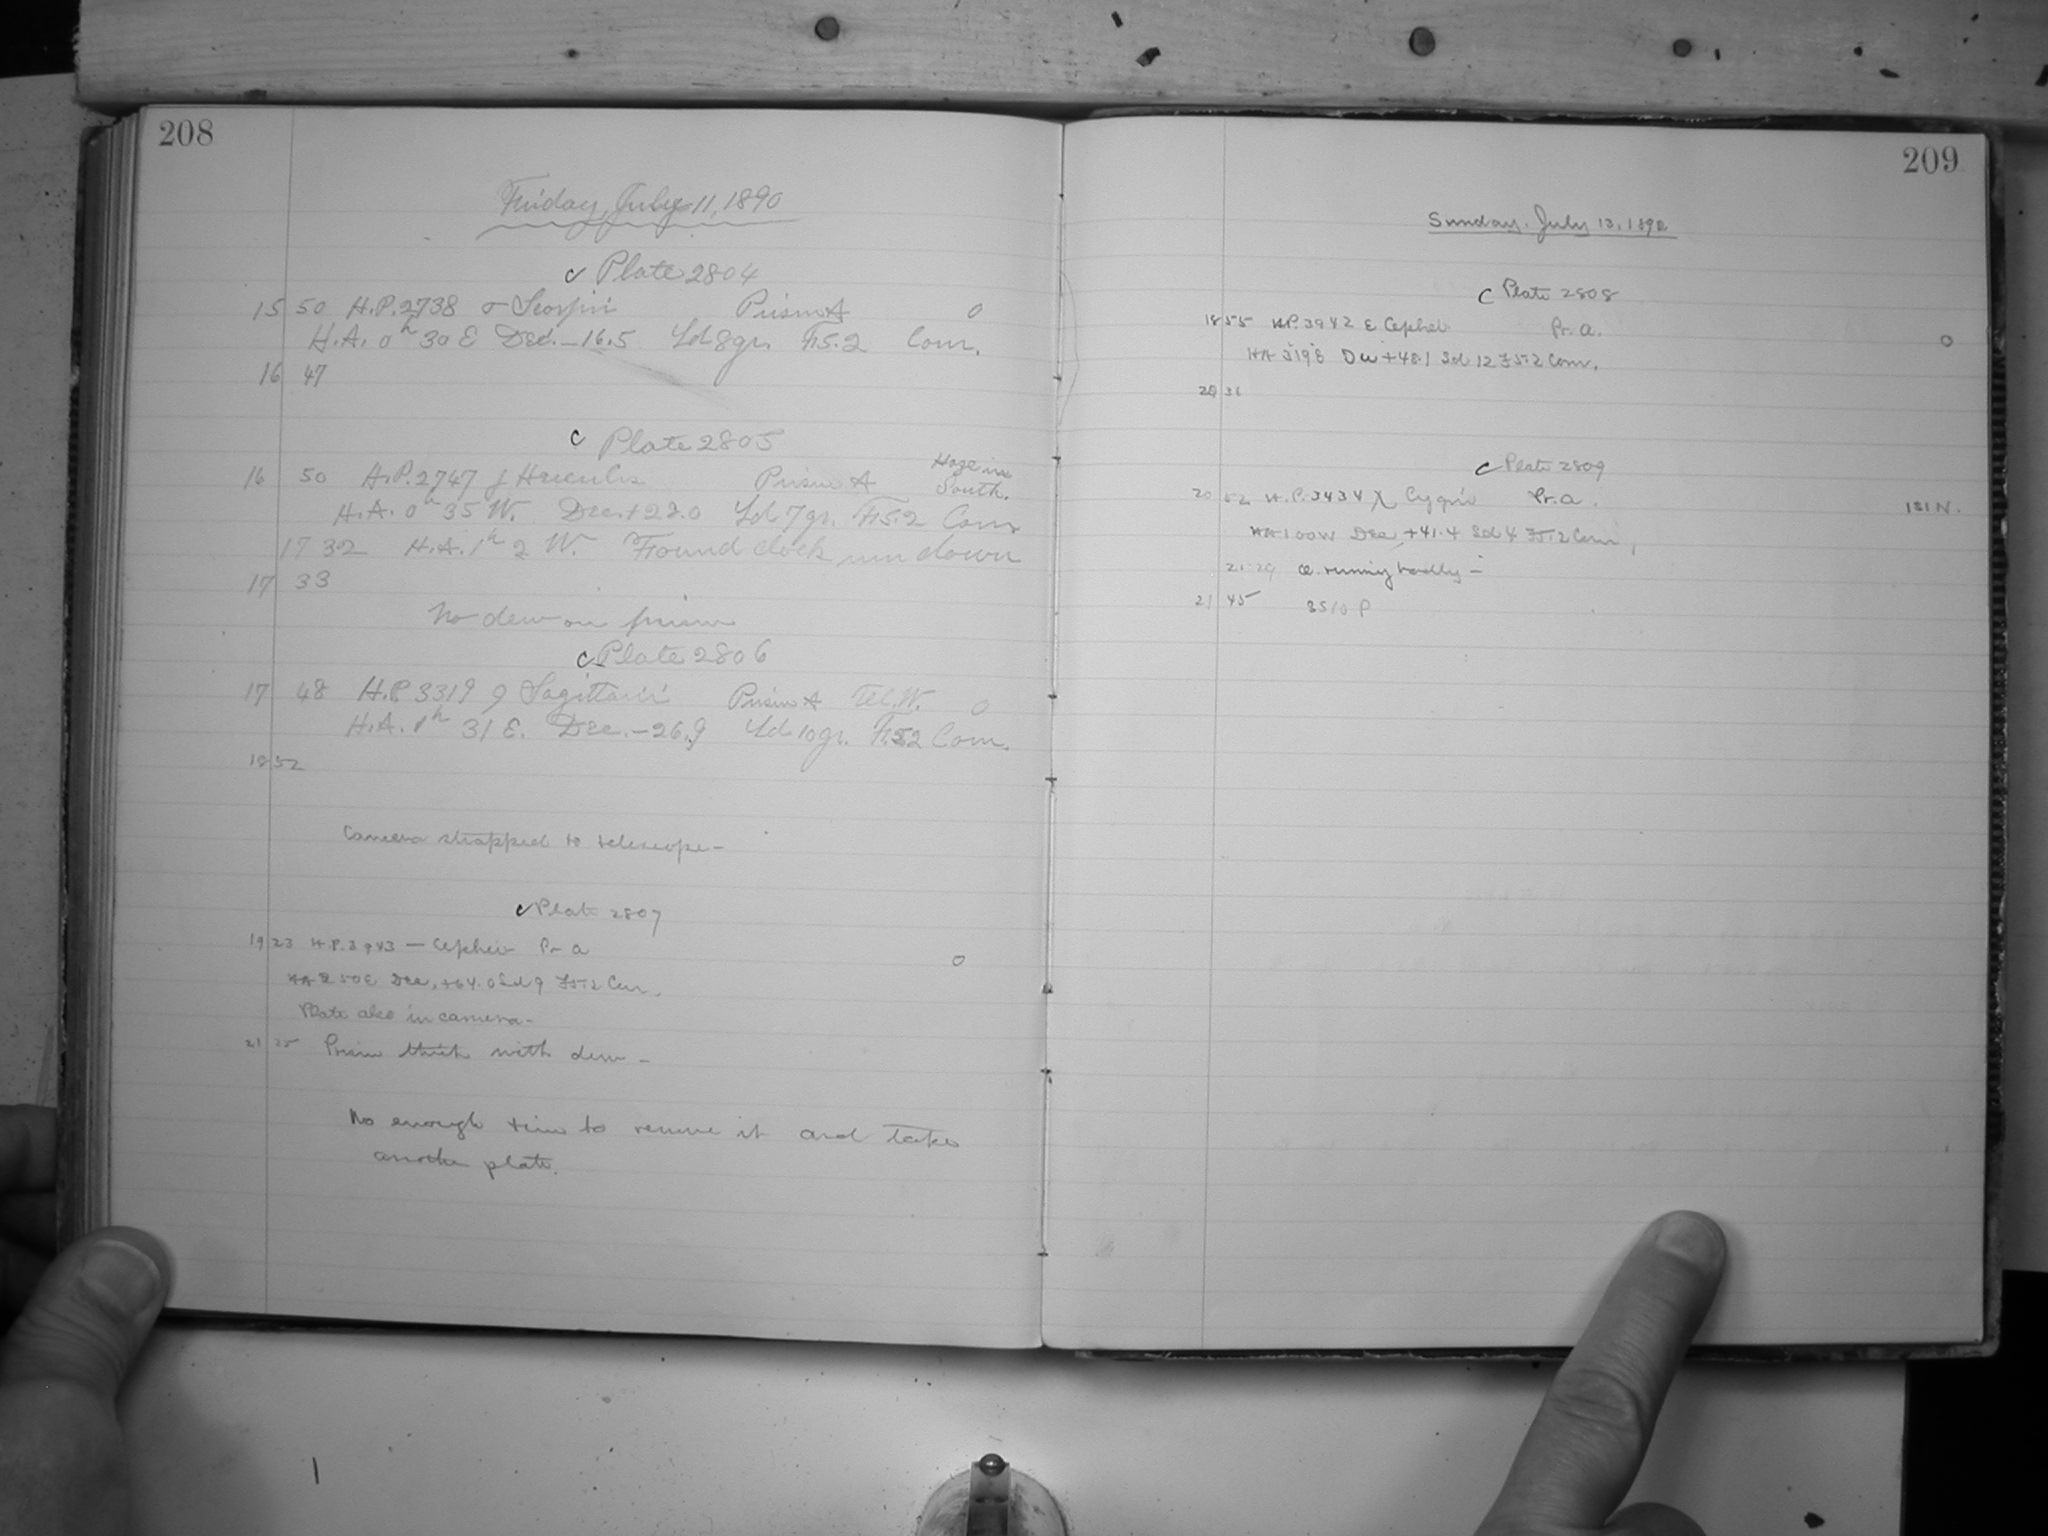 208
Friday, July 11, 1890
c Plate 2804
15 50 H.P. 2738 σ Scorpii Prism A 0
H.A. 0h 30 E Dec. -16.5 Sd 8 gr. F5.2 Com.
16 47
c Plate 2805
16 50 H.P. 2747 Herculis Prism A Haze in South.
H.A. 0h 35 W. Dec. +22.0 Sd 7 gr. F5.2 Com
17 32 H.A. 1h 2 W. Found clock run down
17 33
No dew on prism
c Plate 2806
17 48 H.P. 3319 Sagittarii Prism A Tel. W. 0
H.A. 31 E. Dec. -26.9 Sd 10 gr. F5.2 Com.
18 52
Camera strapped to telescope -
c Plate 2807
19 23 H.P. 3943 — Cephei Pr a 0
HA 2 50 E Dec. +64.0 Sd 9 F5.2 Com.
Plate also in camera -
21 25 Prism thick with dew -
No enough time to remove it and take
another plate.
209
Sunday, July 13, 1890
c Plate 2808
18 55 H.P. 3942 ε Cephei Pr. a. 0
HA Dec +48.1 Sd 12 F5.2 Com.
20 31
c Plate 2809
20 52 H.P. 3434 χ Cygni Pr. a. 181 N.
HA 1 00 W Dec +41.4 Sd 4 F5.2 Com,
21 29 running badly -
21 45 3510 P